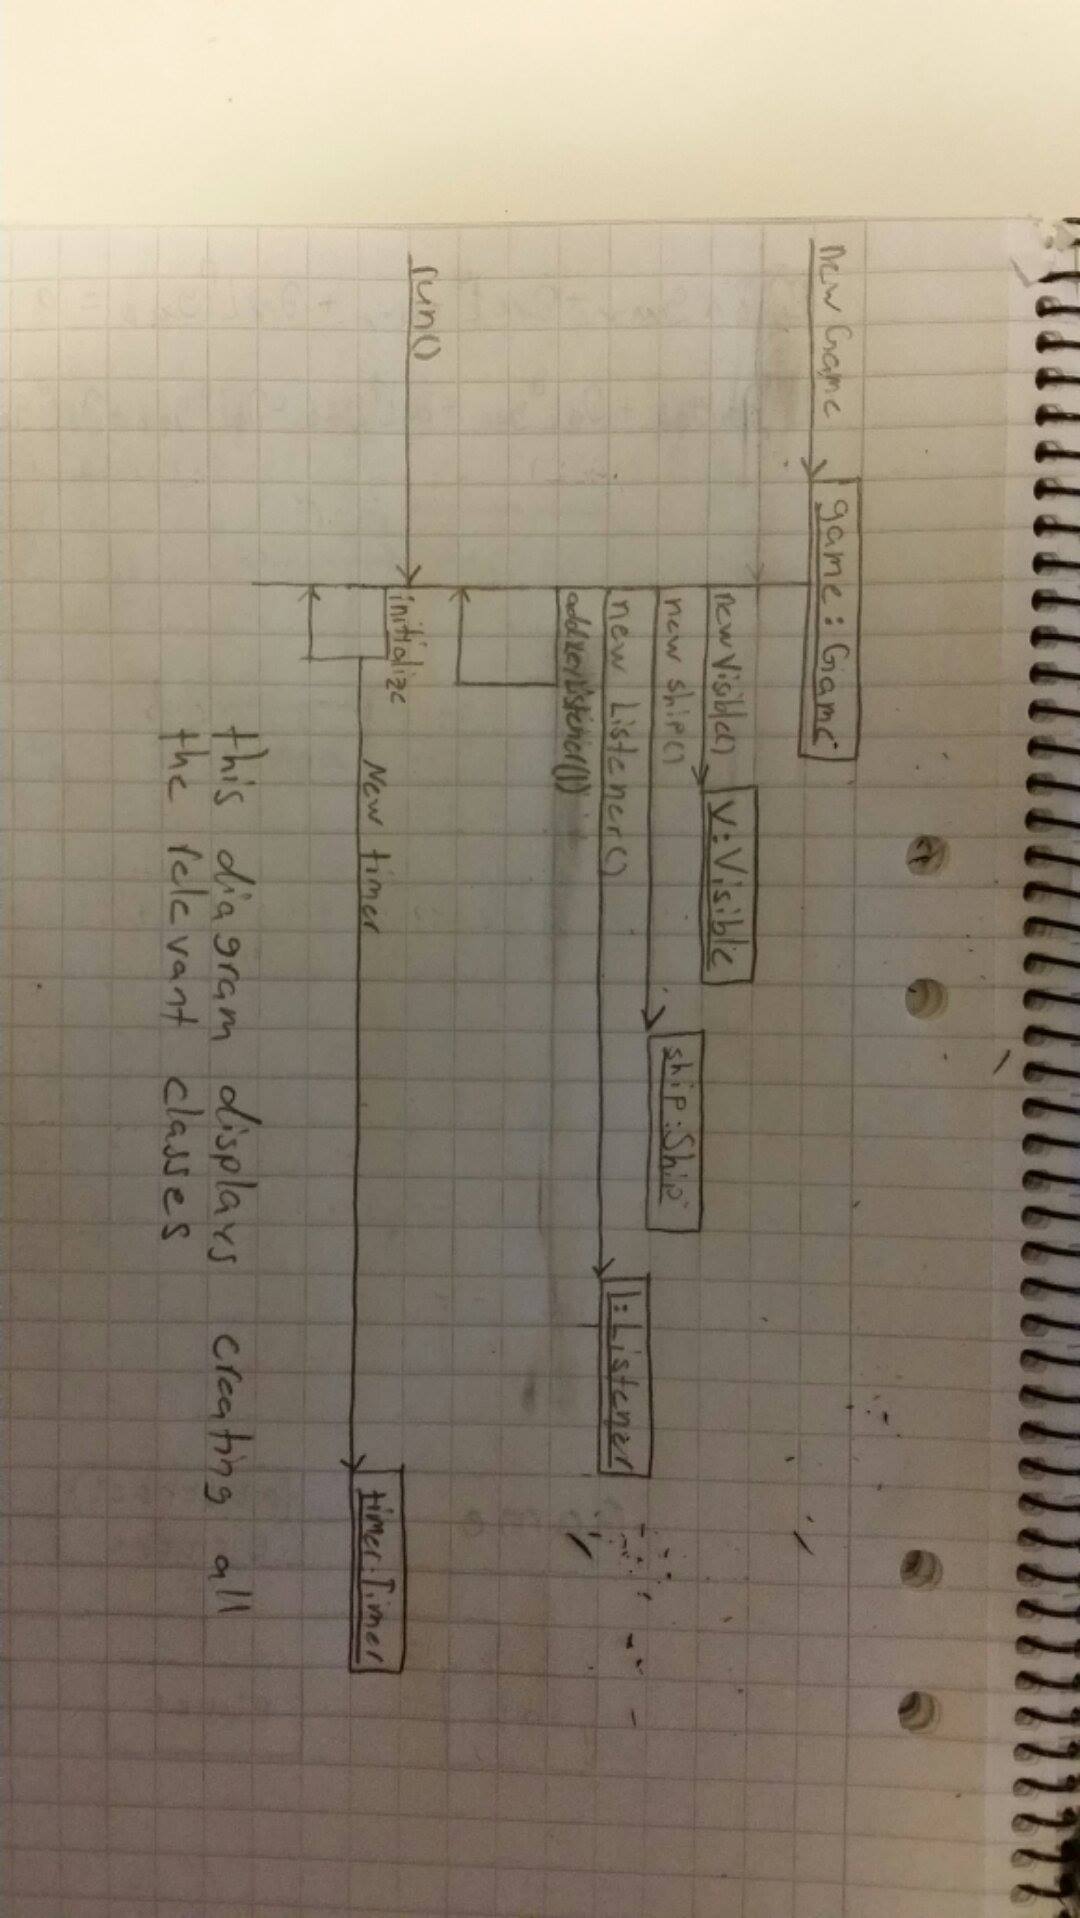 new Game
game : Game
new Visible()
v : Visible
new ship()
ship : Ship
new Listener()
l : Listener
addKeyListener(l)
run()
initialize
New timer
timer : Timer
this diagram displays creating all
the relevant classes